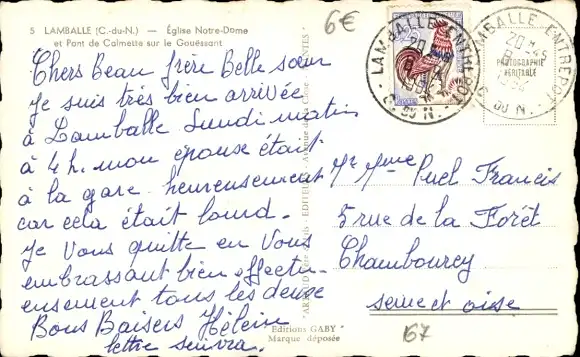 5 LAMBALLE (C.-du-N.) — Église Notre-Dame
et Pont de Calmette sur le Gouëssant
6€
Chers Beau frère Belle sœur
Je suis très bien arrivée
à Lamballe Lundi matin
à 4 h. mon épouse était
à la gare heureusement
car cela était lourd.
Je vous quitte en vous
embrassant bien affectu-
eusement tous les deux
Bons Baisers
lettre suivra.
LAMBALLE ENTREPOT
C. DU N.
LAMBALLE ENTREPOT
20 H
C. DU N.
PHOTOGRAPHIE
VÉRITABLE
Mr Mme Puel Francis
5 rue de la Forêt
Chambourcy
seine et oise
Editions GABY
Marque déposée
167